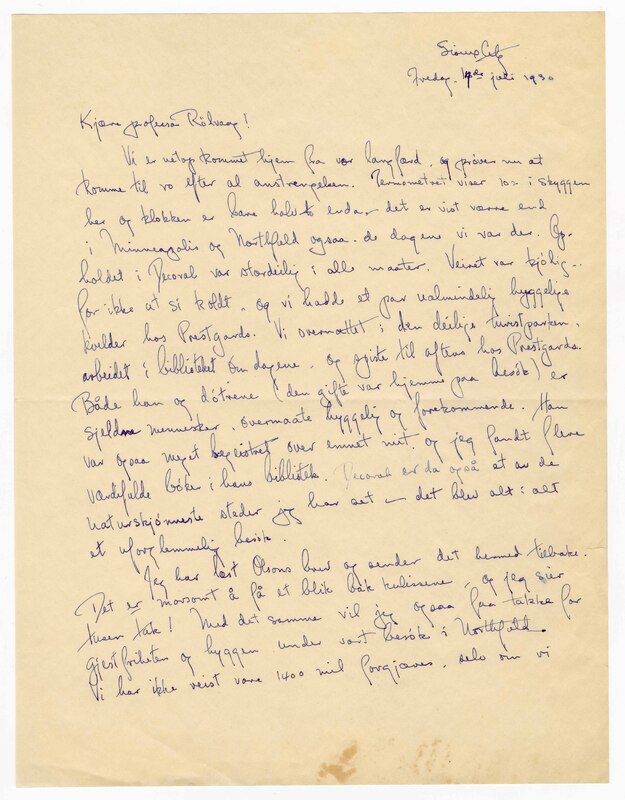 Sioux City
Fredag, 4de juli 1930
Kjære professor Rölvaag!
Vi er netop kommet hjem fra vor langfærd, og prøver nu at
komme til ro efter al anstrengelsen. Termometret viser 102 i skyggen
her og klokken er bare halv to enda – det er vist værre end
i Minneapolis og Northfield ogsaa de dagene vi var der. Op-
holdet i Decorah var stordeilig i alle maater. Veiret var kjølig –
for ikke at si koldt – og vi hadde et par ualmindelig hyggelige
kvelder hos Prestgards. Vi overnattet i den deilige turistparken,
arbeidet i biblioteket om dagene, og spiste til aftens hos Prestgards.
Både han og döttrene (den gifte var hjemme paa besök) er
sjeldne mennesker, overmaate hyggelig og forekommende. Han
var ogsaa meget begeistret over emnet mit, og jeg fandt flere
værdifulde böker i hans bibliotek. Decorah er da også et av de
naturskjønneste steder jeg har set – det blev alt i alt
et uforglemmelig besök.
Jeg har læst Olsons brev og sender det hermed tilbake.
Det er morsomt å få et blik bak kulissene – og jeg sier
tusen tak! Med det samme vil jeg ogsaa faa takke for
gjestfriheten og hyggen under vort besök i Northfield.
Vi har ikke reist vore 1400 mil forgjæves, selv om vi